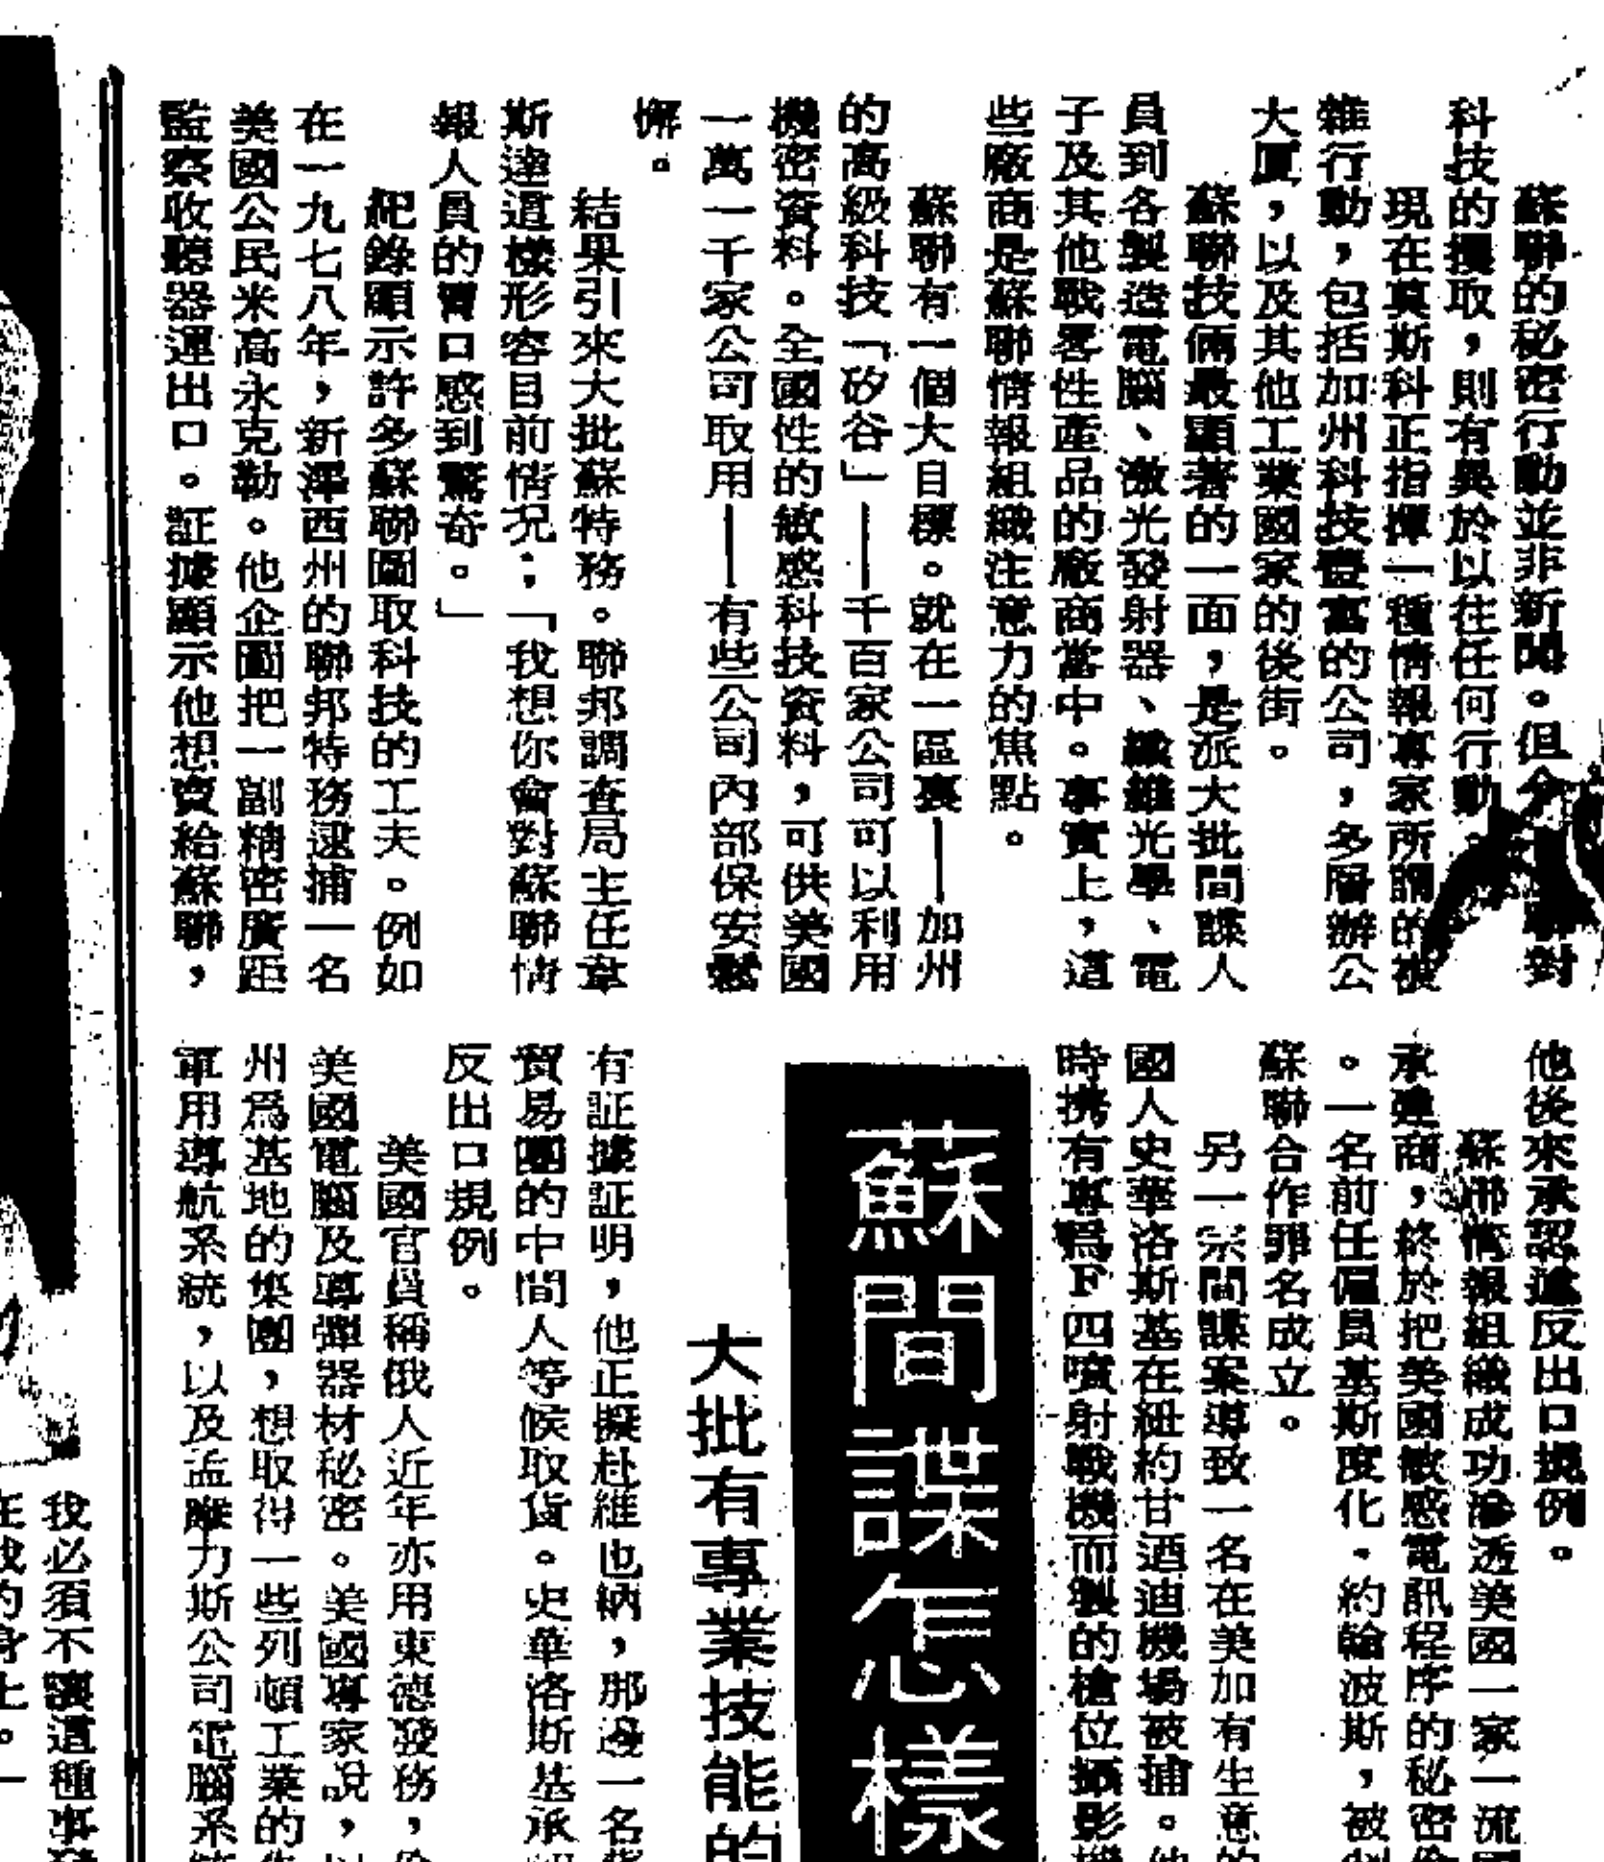 蘇聯的秘密行動並非新聞。但今蘇聯對
科技的攫取，則有異於以往任何行動。
現在莫斯科正指揮一種情報專家所謂的複
雜行動，包括加州科技豐富的公司，多層辦公
大厦，以及其他工業國家的後街。
蘇聯技倆最顯著的一面，是派大批間諜人
員到各製造電腦、激光發射器、纖維光學、電
子及其他戰畧性產品的廠商當中。事實上，這
些廠商是蘇聯情報組織注意力的焦點。
蘇聯有一個大目標。就在一區裏——加州
的高級科技「矽谷」——千百家公司可以利用
機密資料。全國性的敏感科技資料，可供美國
一萬一千家公司取用——有些公司內部保安鬆
懈。
結果引來大批蘇特務。聯邦調查局主任韋
斯達這樣形容目前情況：「我想你會對蘇聯情
報人員的胃口感到驚奇。」
紀錄顯示許多蘇聯圖取科技的工夫。例如
在一九七八年，新澤西州的聯邦特務逮捕一名
美國公民米高永克勒。他企圖把一副精密廣距
監察收聽器運出口。証據顯示他想賣給蘇聯，
他後來承認違反出口規例。
蘇聯情報組織成功滲透美國一家一流
承建商，終於把美國敏感電訊程序的秘密
。一名前任僱員基斯度化·約翰波斯，被
蘇聯合作罪名成立。
另一宗間諜案導致一名在美加有生意的
國人史華洛斯基在紐約甘迺迪機場被捕。他
時携有專爲F四噴射戰機而製的槍位攝影機
蘇間諜怎樣
大批有專業技能的
有証據証明，他正擬赴維也納，那邊一名
貿易團的中間人等候取貨。史華洛斯基承認
反出口規例。
美國官員稱俄人近年亦用東德發務，
美國電腦及導彈器材秘密。美國專家說，以
州爲基地的集團，想取得一些列頓工業的
軍用導航系統，以及孟離力斯公司電腦系統
我必須不讓這種事發
在我的身上。一